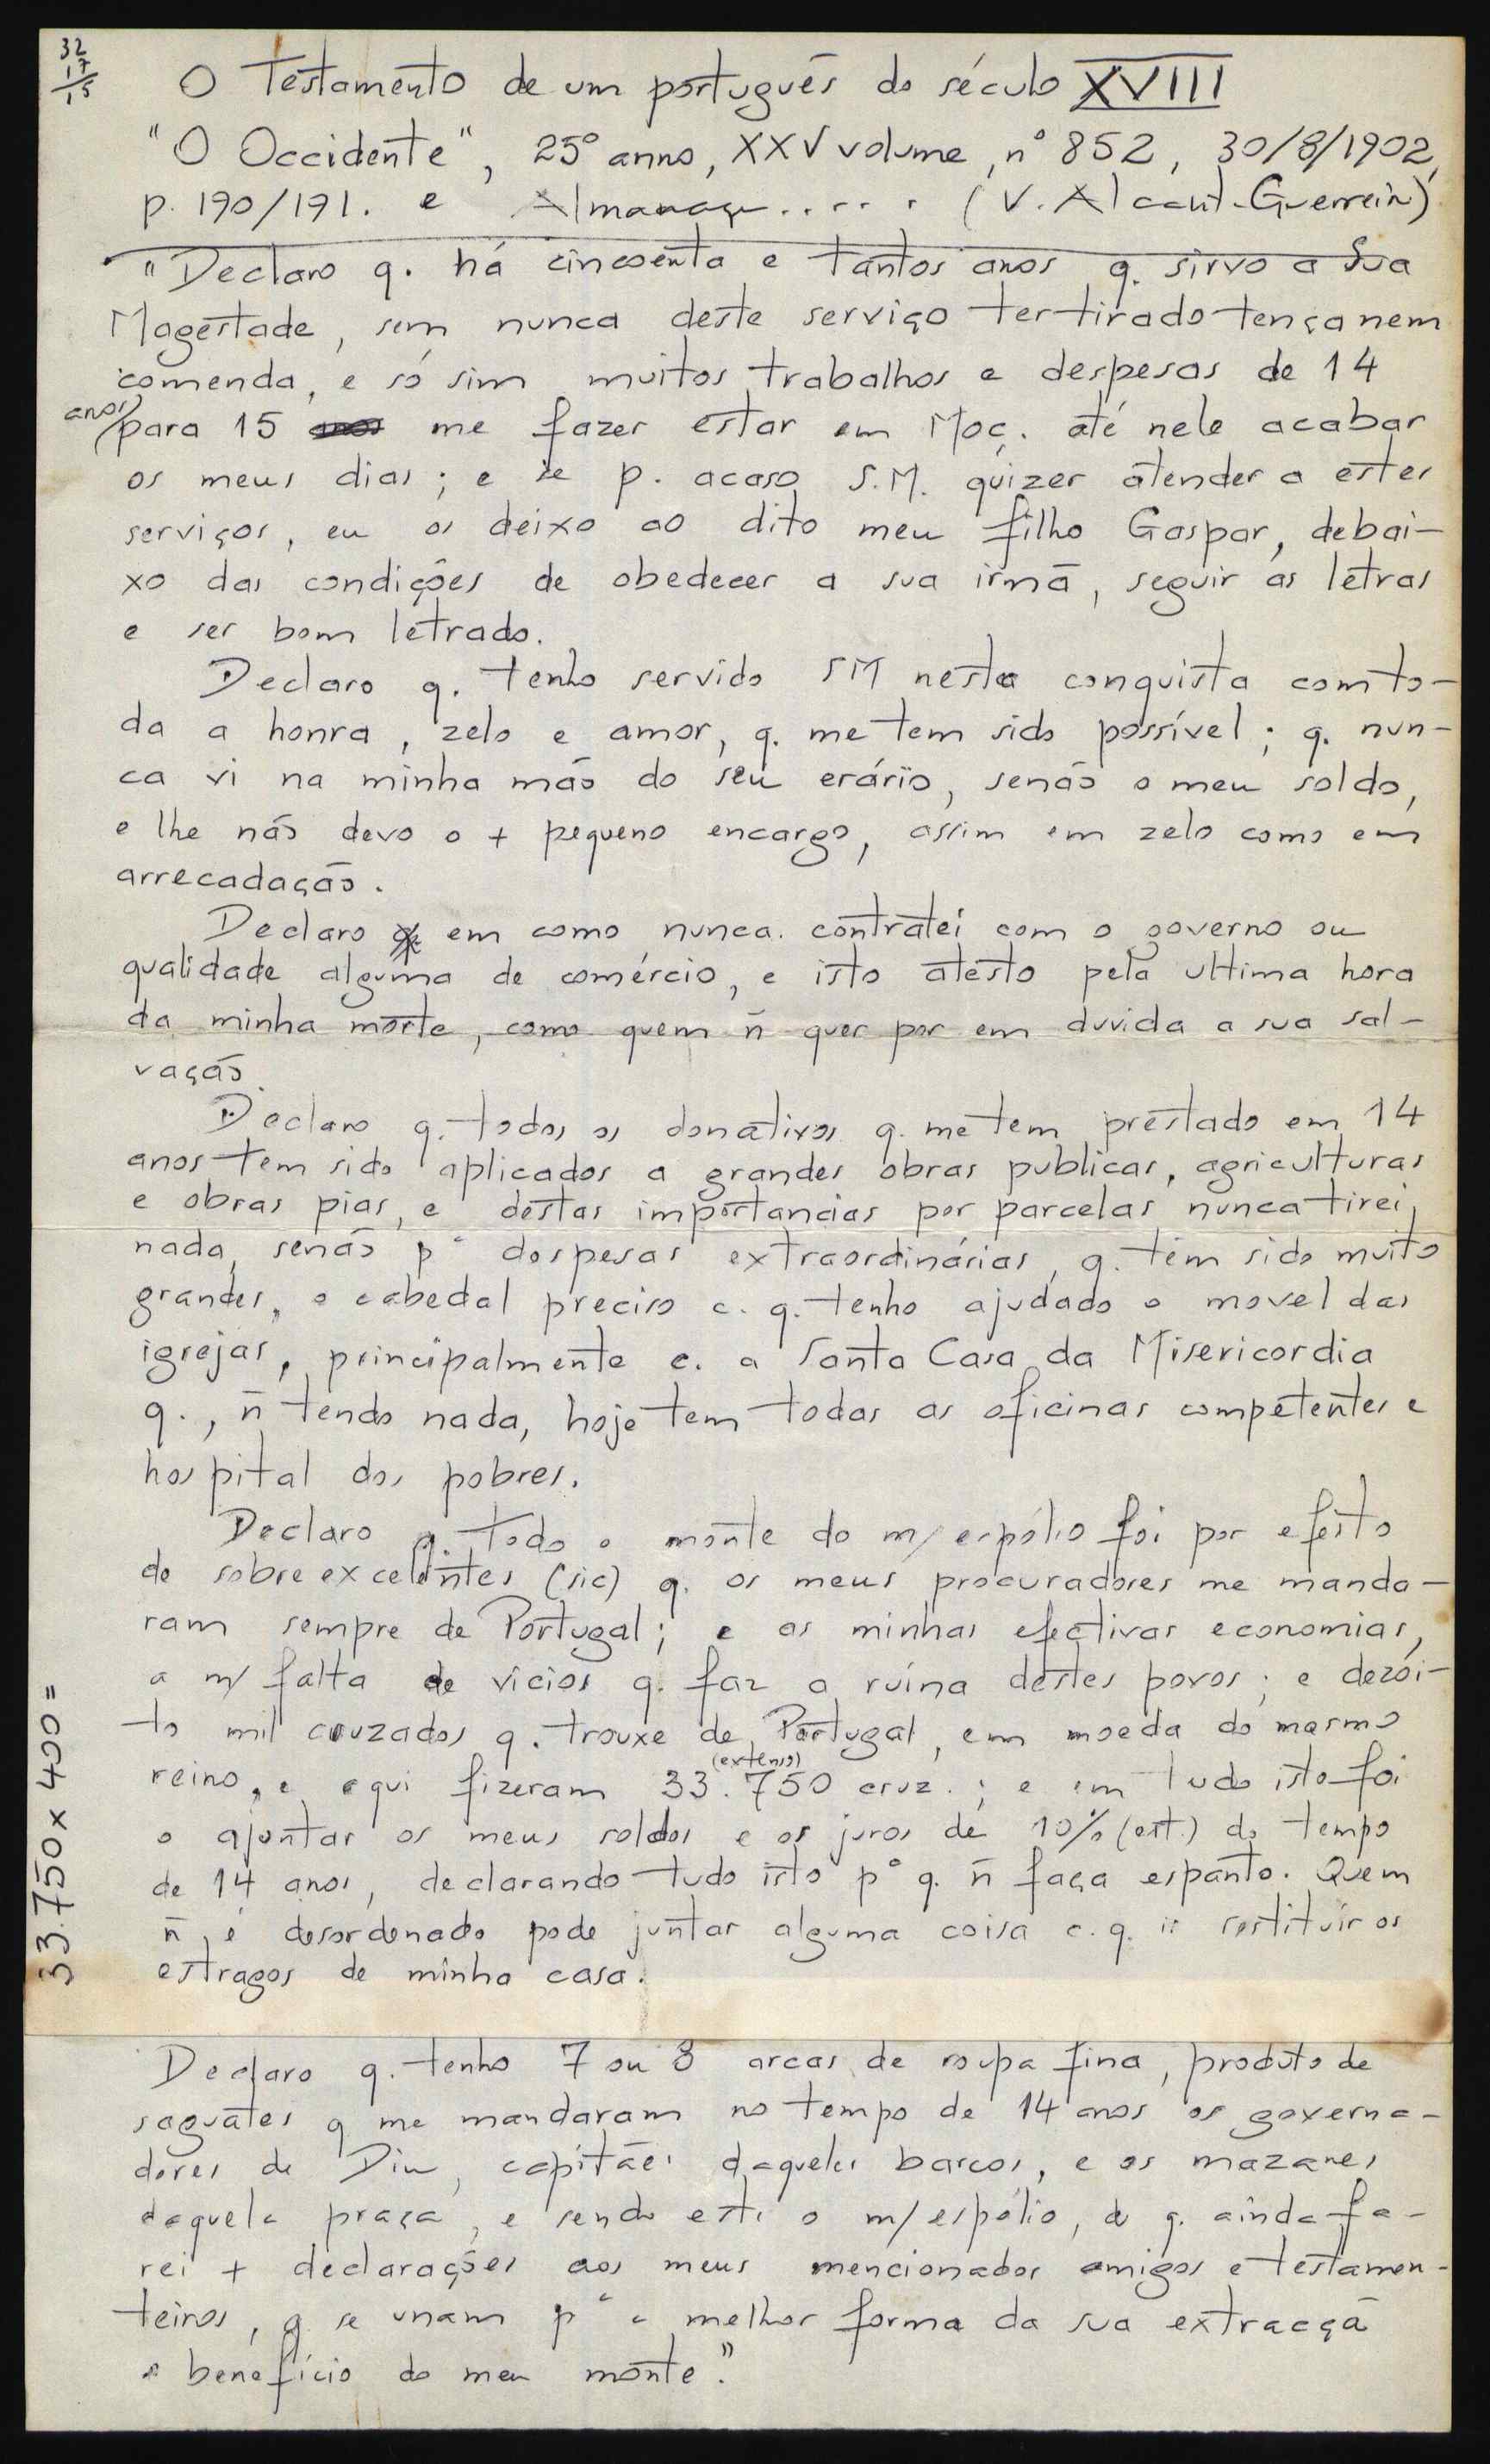 32
17
15
O Testamento de um português do século XVIII
"O Occidente", 25º anno, XXV volume, nº 852, 30/8/1902,
p. 190/191. e ..... (V. Guerreiro)
"Declaro q. há cincoenta e tantos anos q. sirvo a Sua
Magestade, sem nunca deste serviço ter tirado tença nem
comenda, e só sim muitos trabalhos e despesas de 14
anos/para 15 me fazer estar em Moç. até nele acabar
os meus dias; e se p. acaso S.M. quizer atender a estes
serviços, eu os deixo ao dito meu filho Gaspar, debai-
xo das condições de obedecer a sua irmã, seguir as letras
e ser bom letrado.
Declaro q. tenho servido SM nesta conquista com to-
da a honra, zelo e amor, q. me tem sido possível; q. nun-
ca vi na minha mão do seu erário, senão o meu soldo,
e lhe não devo o + pequeno encargo, assim em zelo como em
arrecadação.
Declaro em como nunca contratei com o governo ou
qualidade alguma de comércio, e isto atesto pela ultima hora
da minha morte, como quem ñ quer por em duvida a sua sal-
vação.
Declaro q. todos os donativos q. me tem prestado em 14
anos tem sido aplicados a grandes obras publicas, agriculturas
e obras pias, e destas importancias por parcelas nunca tirei
nada, senão pª despesas extraordinárias, q. têm sido muito
grandes, o cabedal preciso c. q. tenho ajudado o movel das
igrejas, principalmente c. a Santa Casa da Misericordia
q., ñ tendo nada, hoje tem todas as oficinas competentes e
hospital dos pobres.
Declaro q. todo o monte do m/ espólio foi por efeito
de sobre excelentes (sic) q. os meus procuradores me manda-
ram sempre de Portugal; e as minhas efectivas economias,
a m/ falta de vicios q. faz a ruína destes povos; e dezói-
to mil cruzados q. trouxe de Portugal, em moeda do mesmo
reino, e aqui fizeram 33.750 (extenso) cruz.; e em tudo isto foi
o ajuntar os meus soldos e os juros de 10% (ext.) do tempo
de 14 anos, declarando tudo isto pª q. ñ faça espanto. Quem
ñ é desordenado pode juntar alguma coisa c. q. ir restituir os
estragos de minha casa.
33.750 x 400 =
Declaro q. tenho 7 ou 8 arcas de roupa fina, produto de
saguates q me mandaram no tempo de 14 anos os governa-
dores de Diu, capitães daqueles barcos, e os mazanes
daquela praça, e sendo este o m/ espólio, de q. ainda fa-
rei + declarações aos meus mencionados amigos e testamen-
teiros, q se unam pª a melhor forma da sua extracçã
e benefício do meu monte."